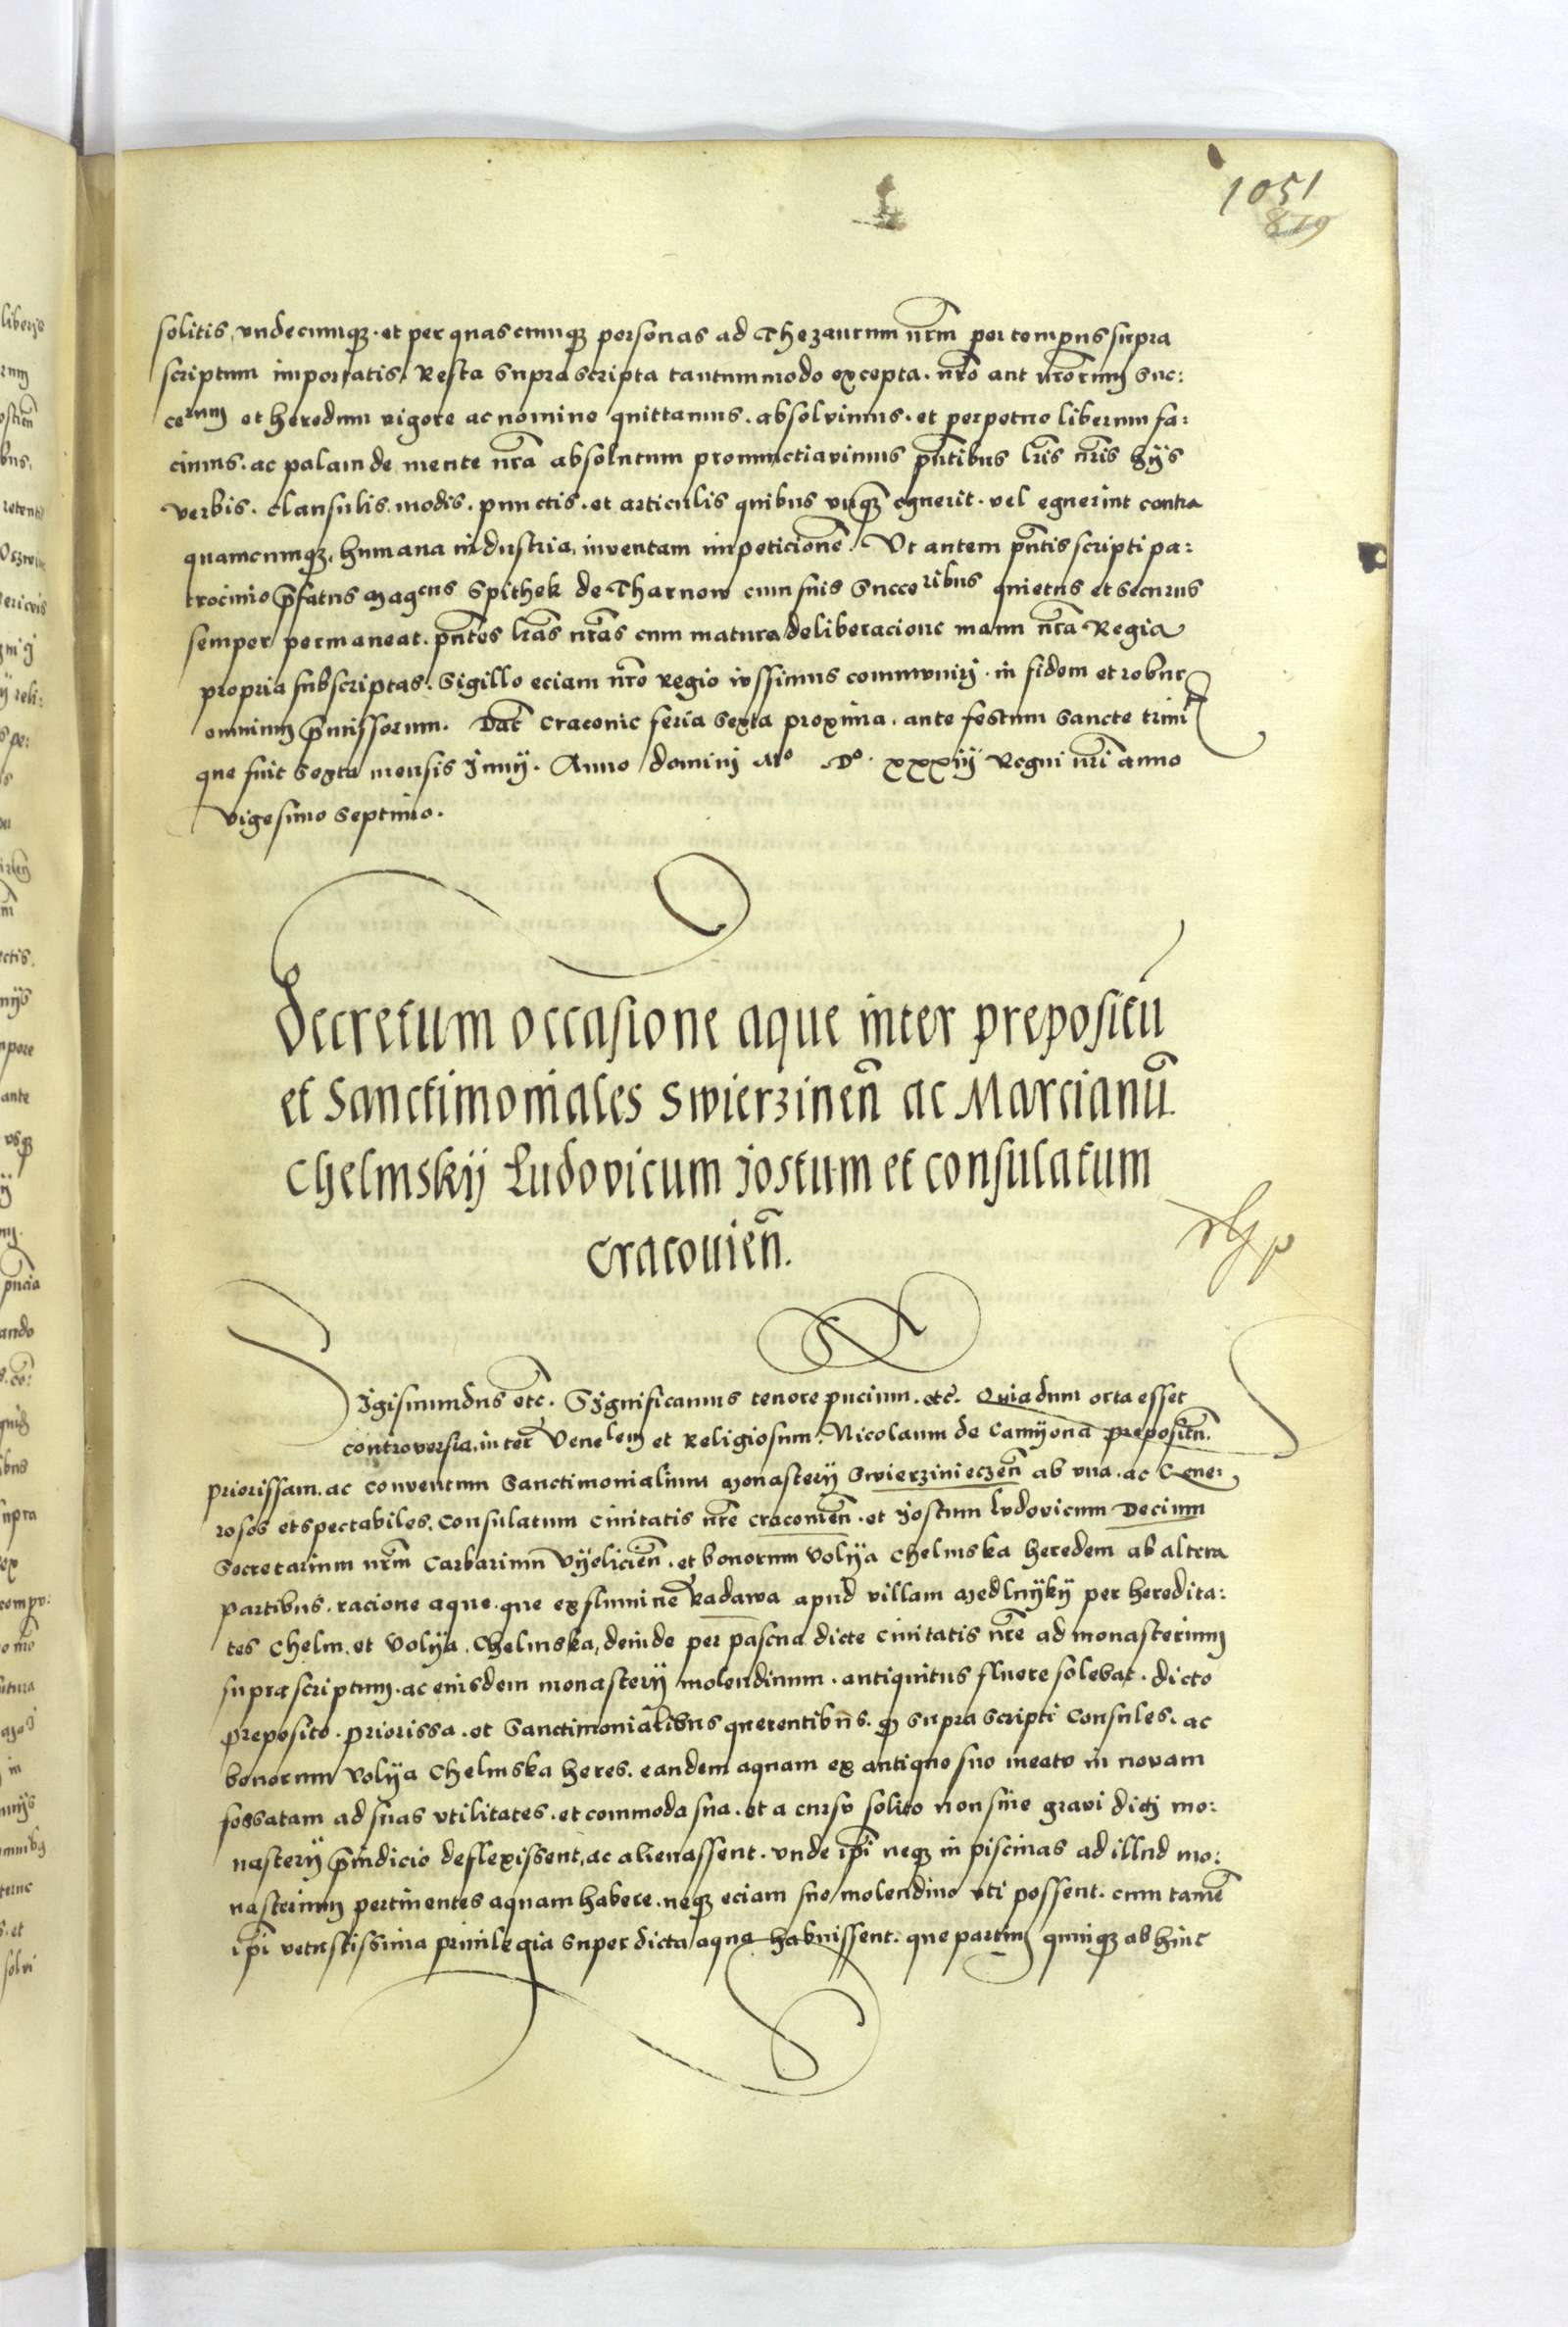 1051
819
solitis, undecunq3. et per quascunq3 personas ad Thezaurum nrm per tempus supra
scriptum importatis, Resta supra scripta tantummodo excepta. nro aut nrorum suc:
cerum et heredum vigore ac nomine quittamus. absolvimus. et perpetuo liberum fa:
cimus. ac palam de mente nra absolutum pronunctiavimus pntibus lris nris hijs
verbis. clausulis. modis. punctis. et articulis quibus unq3 eguerit. vel eguerint contra
quamcunq3. humana industria, inventam impeticione. Ut autem pntis scripti pa:
trocinio pfatus magcus Spithek de Tharnow cum suis Succeribus quietus et securus
semper permaneat. pntes lras nras cum matura deliberacione manu nra Regia
propria subscriptas. Sigillo eciam nro Regio iussimus communirj. in fidem et robur
omnium pmissorum. Dat Cracovie feria sexta proxima. ante festum sancte trinit
que fuit sexta mensis Junij. Anno dominj Mo Do. xxxiij Regni nri anno
vigesimo septimo.
Decretum occasione aque inter prepositu
et Sanctimoniales Swierzinen ac Marcianu
Chelmskij Ludovicum Jostum et consulatum
Cracouien.
Sigismundus etc. Significamus tenore pncium. etc. Quia dum orta esset
controversia, inter Venelem et Religiosum. Nicolaum de Camyona prepositu.
priorissam. ac conventum Sanctimonialium monasterij Swierzinieczen ab una. ac Gene:
rosos et spectabiles. Consulatum Civitatis nre Cracovien. et Jostum Ludovicum Decium
Secretarium nrm Carbarium Vyelicien. et bonorum Volija Chelmska heredem ab altera
partibus. racione aque. que ex flumine Radawa apud villam Medlnijkij per heredita:
tes Chelm. et Volija. Chelmska, deinde per pascua dicte Civitatis nre ad monasterium
supra scriptum. ac eiusdem monasterij molendinum. antiquitus fluere solebat. dicto
preposito. priorissa. et Sanctimonialibus querentibus. q supra scripti Consules. ac
bonorum Volija Chelmska heres. eandem aquam ex antiquo suo meatu in novam
fossatam ad suas utilitates. et commoda sua. et a cursu solito non sine gravi dictj mo:
nasterij piudicio deflexissent, ac alienassent. unde ipi neq3 in piscinas ad illud mo:
nasterium pertinentes aquam habere. neq3 eciam suo molendino uti possent. cum tame
ipi vetustissima privilegia super dicta aqua habuissent. que partim quinq3 ab hinc